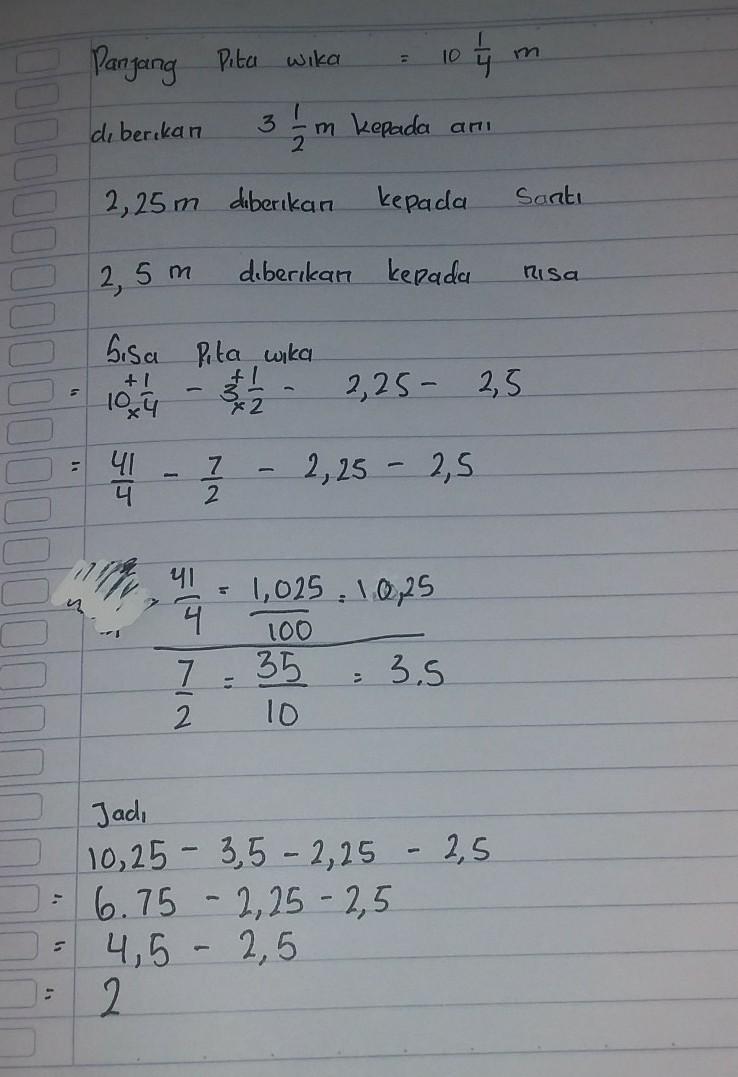 Panjang Pita wika = 10 1/4 m
diberikan 3 1/2 m kepada ani
2,25 m diberikan kepada Santi
2,5 m diberikan kepada nisa
Sisa Pita wika
= 10 + 1 × 4 - 3 + 1 × 2 - 2,25 - 2,5
= 41/4 - 7/2 - 2,25 - 2,5
41/4 = 1,025/100 = 10,25
7/2 = 35/10 = 3.5
Jadi
10,25 - 3,5 - 2,25 - 2,5
= 6.75 - 2,25 - 2,5
= 4,5 - 2,5
= 2